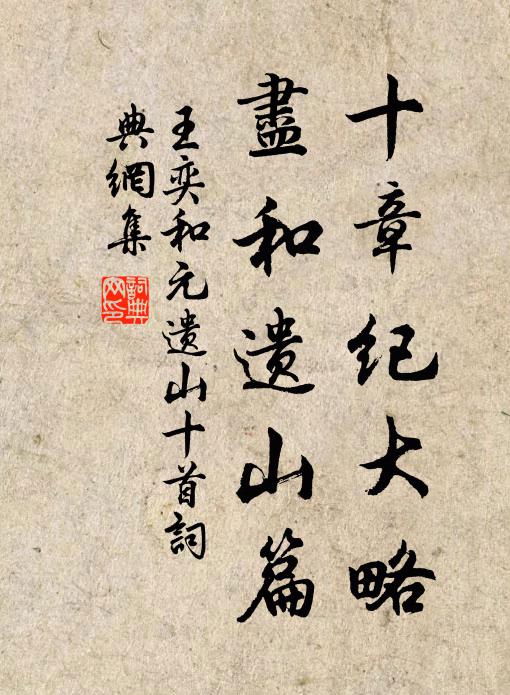 十章纪大略
盡和遗山篇
王奕和元遗山十首詞
典網集
詞典
网印